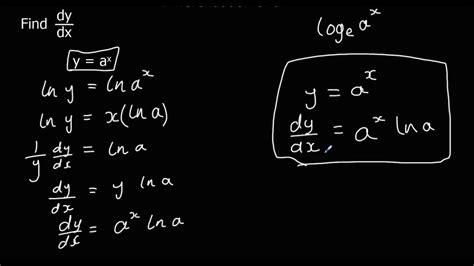 Find dy/dx
y = aˣ
ln y = ln aˣ
ln y = x(ln a)
1/y dy/dx = ln a
dy/dx = y ln a
dy/dx = aˣ ln a
logₑ aˣ
y = aˣ
dy/dx = aˣ ln a